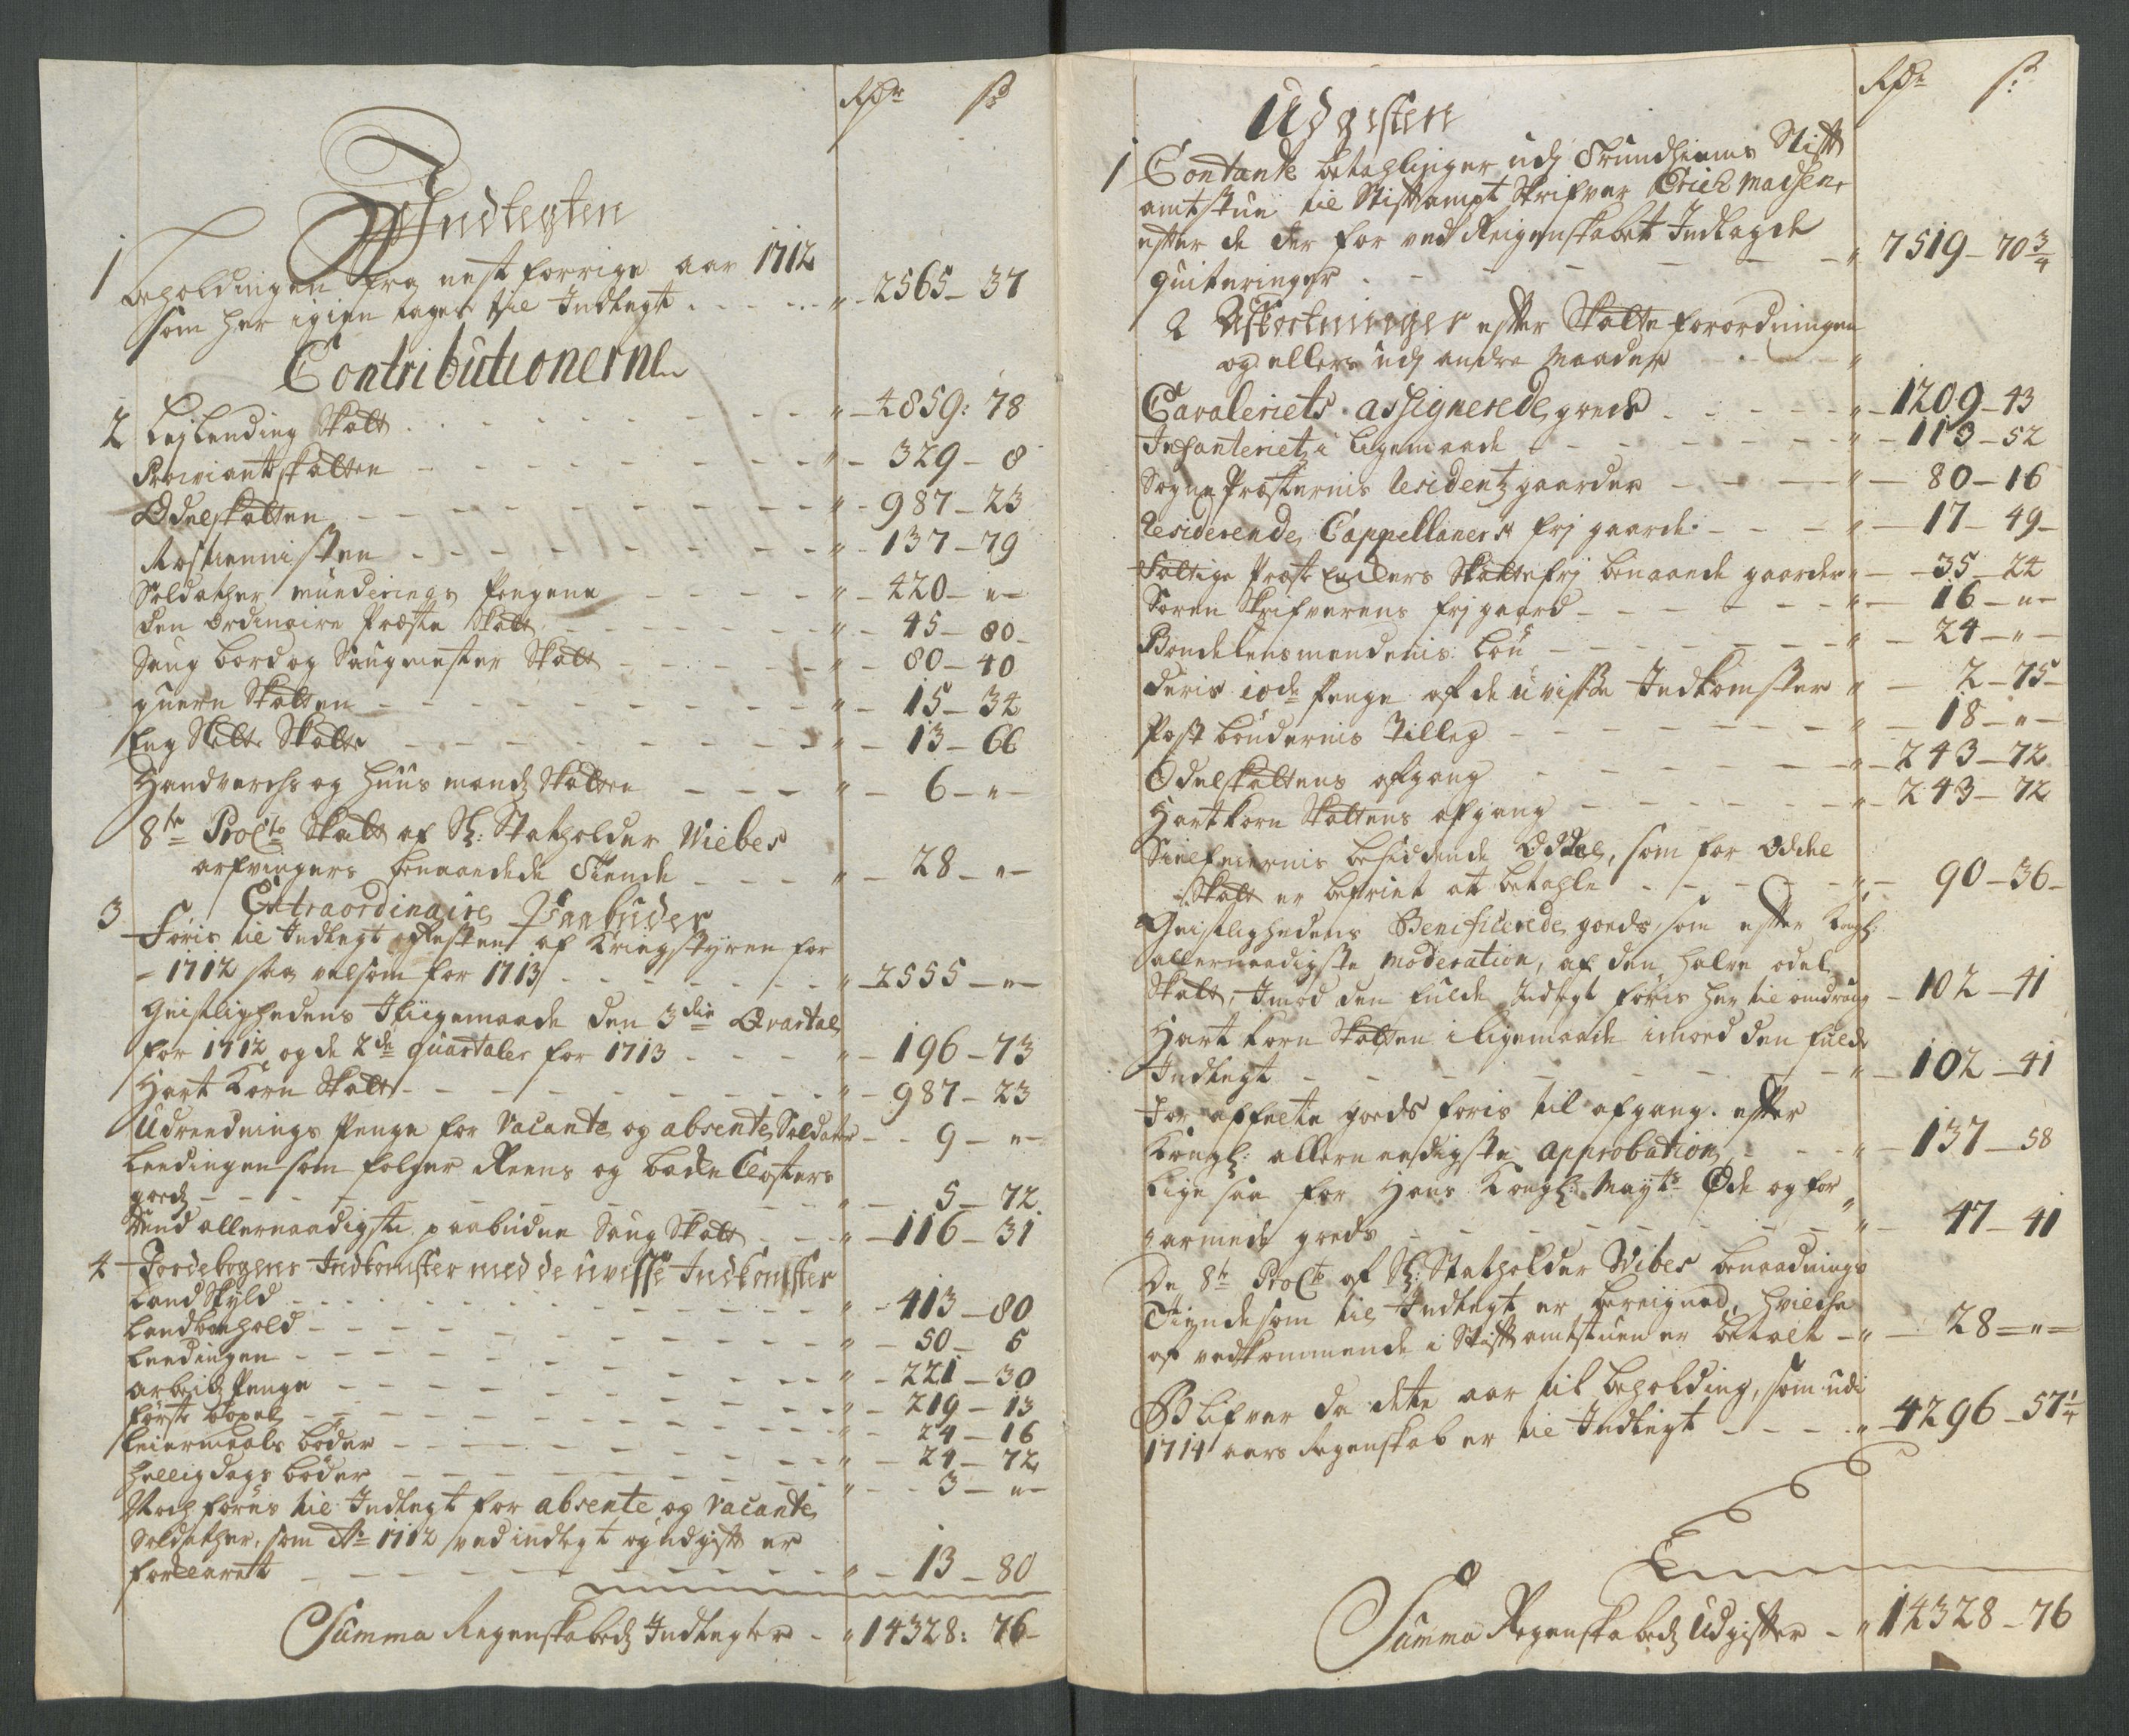 Rdr ß
Indtegten
1 Beholdingen fra nest forrige aar 1712
som her igien tages til Indtegt - - - " - 2565 - 37
Contributionerne
2 Leilending Skatt - - - " - 4859: 78
Proviantskatten - - - " - 329 - 8
Odelskatten - - - " - 987 - 23
Rostienisten - - - " - 137 - 79
Soldather munderings Pengene - - - " - 420 - " -
den Ordinaire Præste Skatt - - - " - 45 - 80 -
Saug bord og Saugmester Skatt - - - " - 80 - 40
quern Skatten - - - " - 15 - 34
Eng Slette Skatte - - - " - 13 - 66
Handverchs og Huusmandz Skatten - - - " - 6 - " -
8te ProCto Skatt af Sl: Statholder Wiebes
arfvingers benaadede Tiende - - - " - 28 - " -
3 Extraordinaire Paabuder
Føris til Indtegt Resten af Krigstyren for
1712 saa velsom for 1713 - - - " - 2555 - " -
Geistlighedens I liigemaade den 3die Qvartal
for 1712 og de 2de quartaler for 1713 - - - " - 196 - 73
Hart Korn Skatt - - - " - 987 - 23
Udreednings Penge for Vacante og absente Soldater - - 9 - " -
Leedingen som følger Reens og Bache Closters
goedz - - - " - 5 - 72
Dend allernaadigste paabudne Saug Skatt - - - " - 116 - 31
4 Jordebogens Indkomster med de uvisse Indkomster
Land Skyld - - - " - 413 - 80
Landbohold - - - " - 50 - 5
Leedingen - - - " - 221 - 30
Arbeidz Penge - - - " - 219 - 13
Første bøxel - - - " - 24 - 16
Leiermaals bøder - - - " - 24 - 72
Helligdags bøder - - - " - 3 - " -
Noch føres til Indtegt for absente og vacante
Soldather, som Ao 1712 ved indtegt og udgift er
forklaret - - - " - 13 - 80
Summa Regenskabedz Indtegter - " 14328: 76 -
Rdr ß:
Udgiften
1 Contante betahlinger udj Trundhiems Stift
amtstue til Stiftampt Skrifver Erich Madsen,
efter de der for ved Reigenskabet Indlagde
quiteringer - - - " 7519 - 70 3/4
2 Afkortninger efter Skatte forordningen
og ellers udj andre Maader - - - "
Cavaleriets assignerede goeds - - - " - 1209 - 43
Infanterietz i ligemaade - - - " - 113 - 52
Sogne Præsternis Residentz gaarder - - - " - 80 - 16
Residerende Cappellaners frj gaarde - - - " - 17 - 49 -
Fattige Præste Enckers Skattefrj benaande gaarder " - 35 - 24
Soren Skrifverens frj gaard - - - " - 16 - " -
Bondelensmendenis Løn - - - " - 24 - " -
deris 10de Penge af de uvisse Indkomster " - 2 - 75 -
Post bøndernis Tilleg - - - " - 18 - " -
Odelskattens afgang - - - " - 243 - 72
Hartkorn Skattens afgang - - - " - 243 - 72
Sielfeiernis besiddende Oddel, som for Oddel
Skatt er befriet at betahle - - - " - 90 - 36 -
Geistlighedens Beneficerede goeds, som efter Kongl:
allernaadigste moderation, af den halve odel
Skatt, Imod den fulde Indtegt føris her til omdrag - 102 - 41
Hart Korn Skatten i ligemaade imoed den fulde
Indtegt - - - " - 102 - 41
For affelte goeds føris til afgang efter
Kongl: allernaadigste Approbation - - - " - 137 - 58
Lige saa for Hans Kongl: Mayts Øde og for
armede goeds - - - " - 47 - 41
De 8te ProCto af Sl: Statholder Wibes benaadnings
Tiende som til Indtegt er bereignet, hvilche
af vedkommende i Stift amtstuen er betalt - " - 28 - " -
Blifver da dette aar til beholding, som udi
1714 aars Regenskab er til Indtegt - - - " 4296 - 57 1/4
Summa Regenskabedz Udgifter - " 14328 - 76